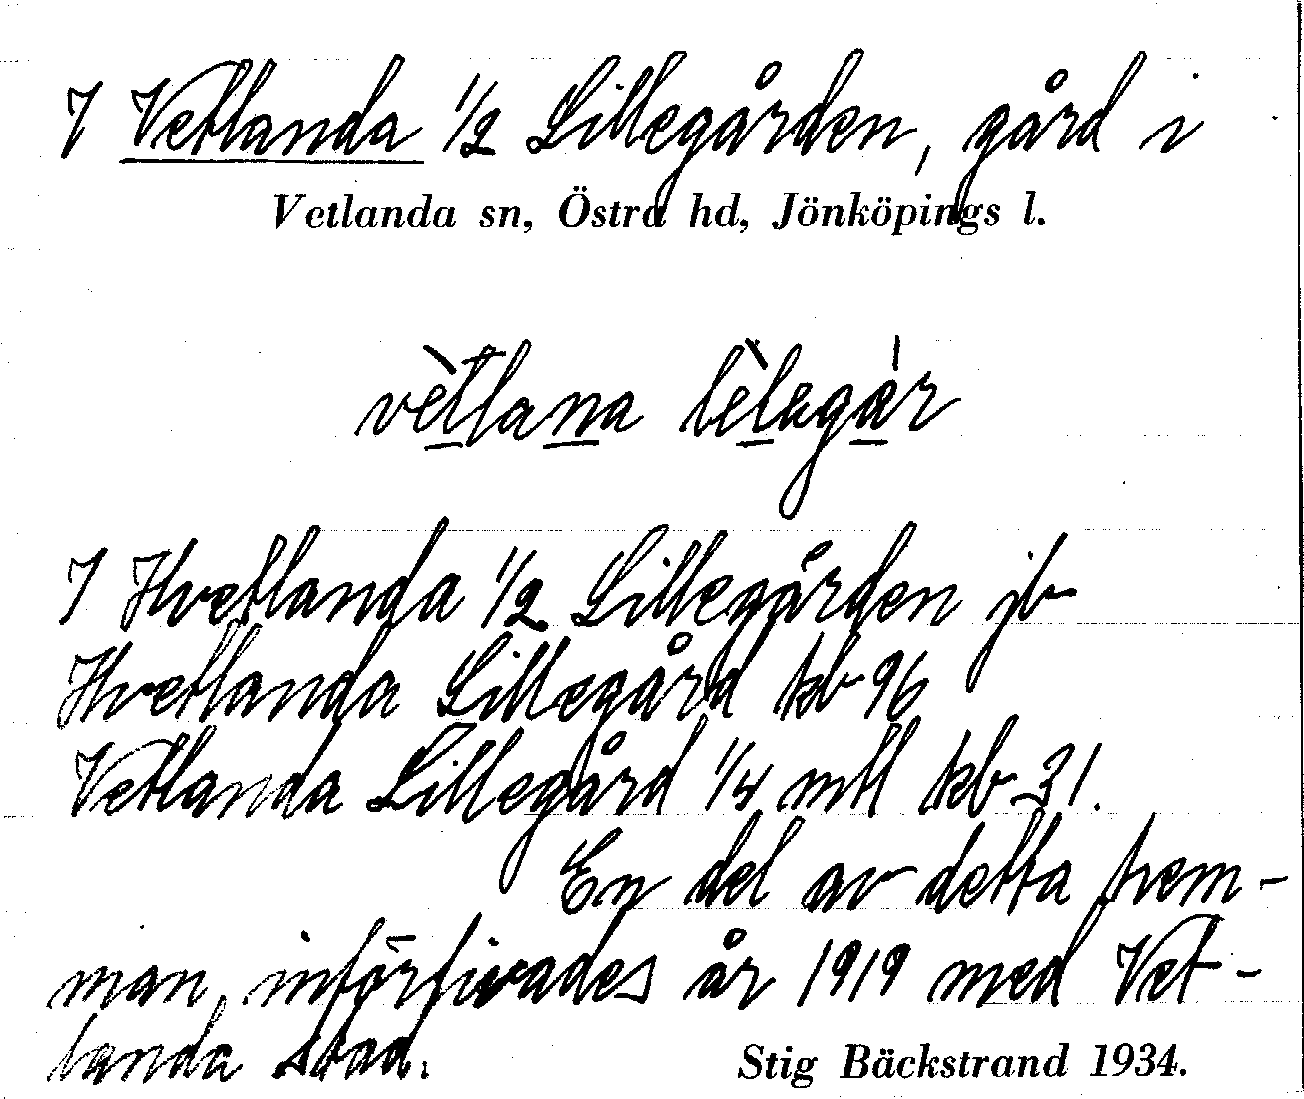 I Vetlanda 1/2 Lillegården, gård i
Vetlanda sn, Östra hd, Jönköpings l.
vètlana lèlegár
I Hvetlanda 1/2 Lillegården jb
Hvetlanda Lillegård kb 96
Vetlanda Lillegård 1/4 mtl kb 31.
En del av detta hem-
man införlivades år 1919 med Vet-
landa stad.
Stig Bäckstrand 1934.